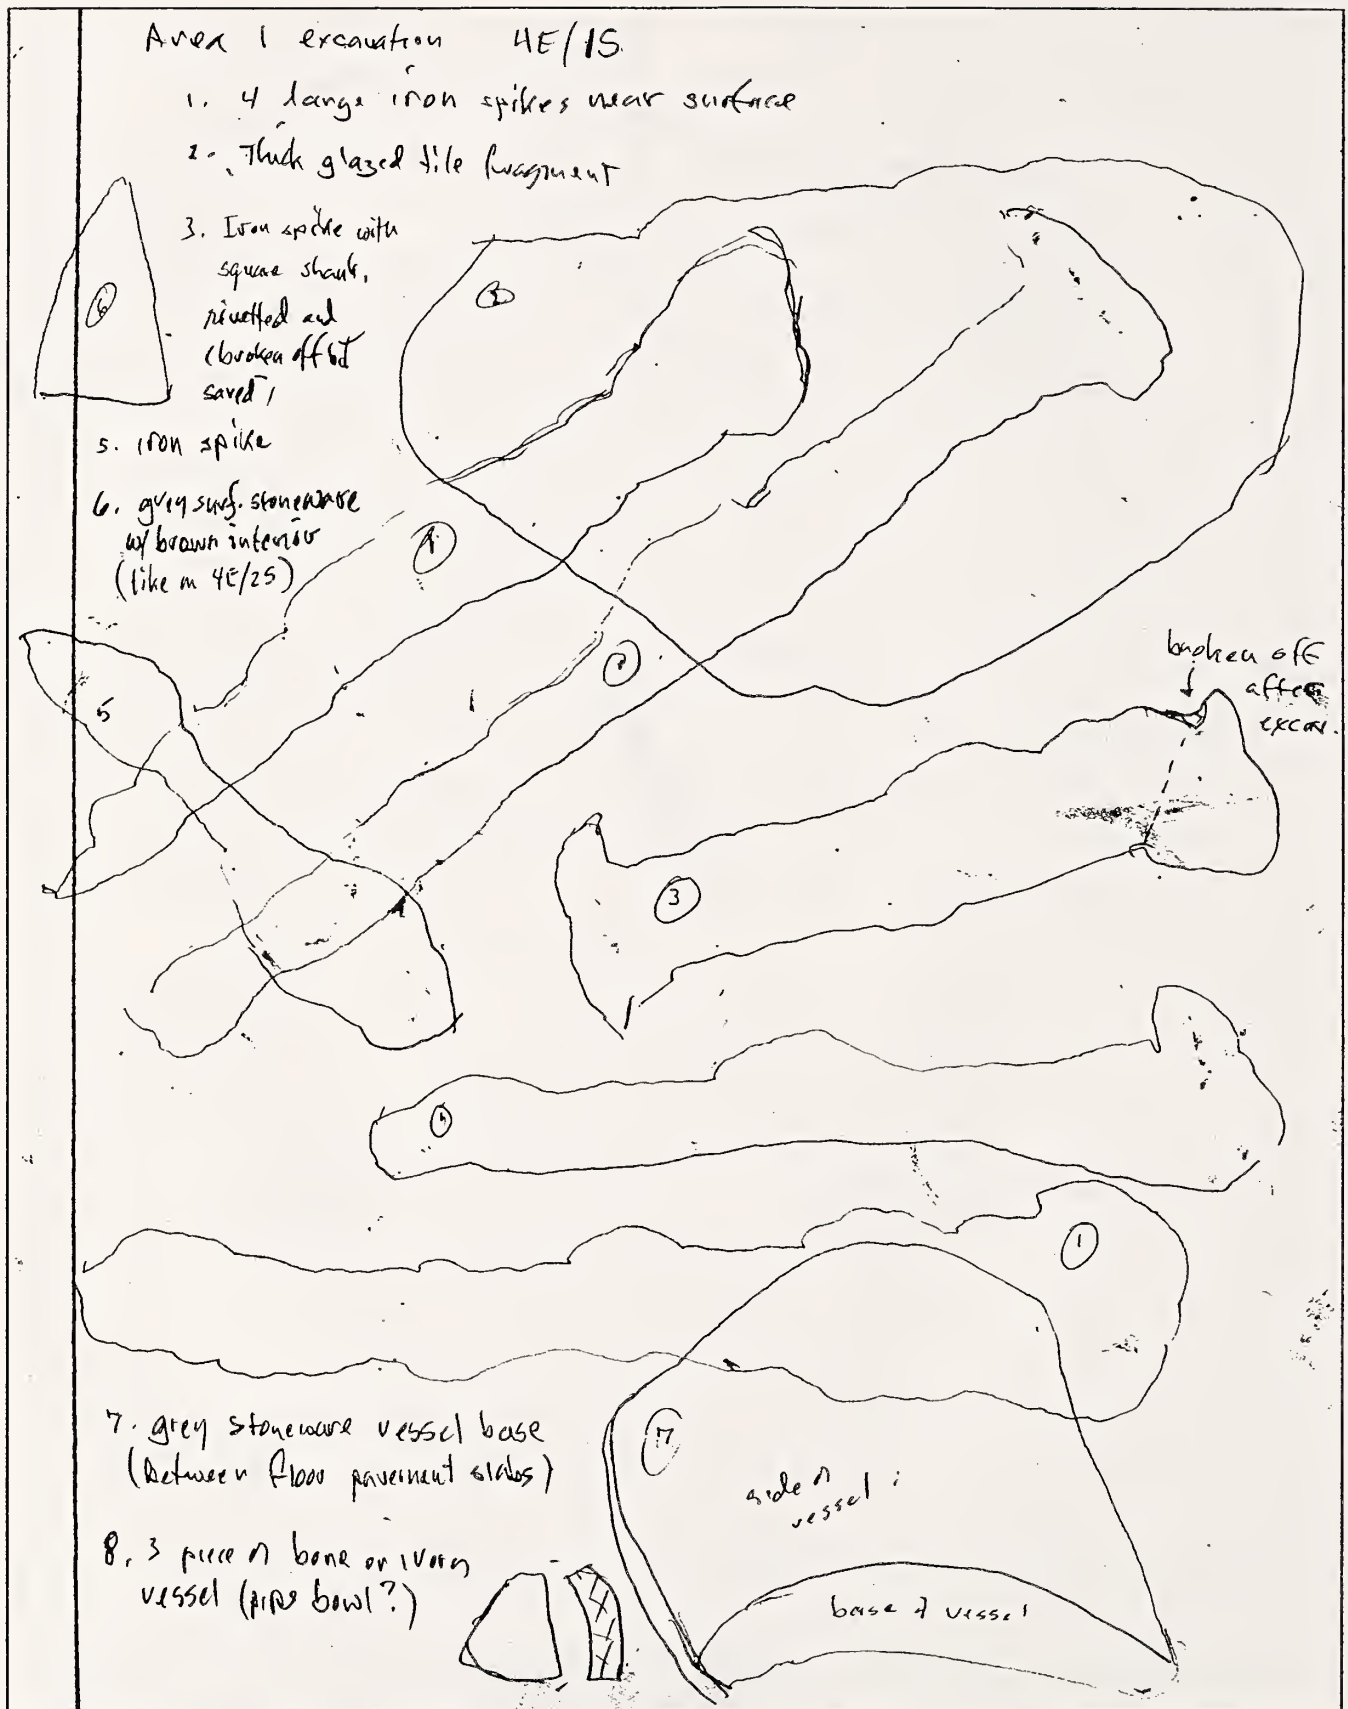 Area 1 excavation 4E/1S
1. 4 large iron spikes near surface
2. Thick glazed tile fragment
3. Iron spike with
square shank,
rivetted and
(broken off bit
saved)
5. iron spike
6. grey surf. stoneware
w/ brown interior
(like in 4E/2S)
6
1
5
broken off
after
excav.
3
1
7. grey stoneware vessel base
(between floor pavement slabs)
7
side of
vessel
8. 3 piece of bone or ivory
vessel (pipe bowl?)
base of vessel